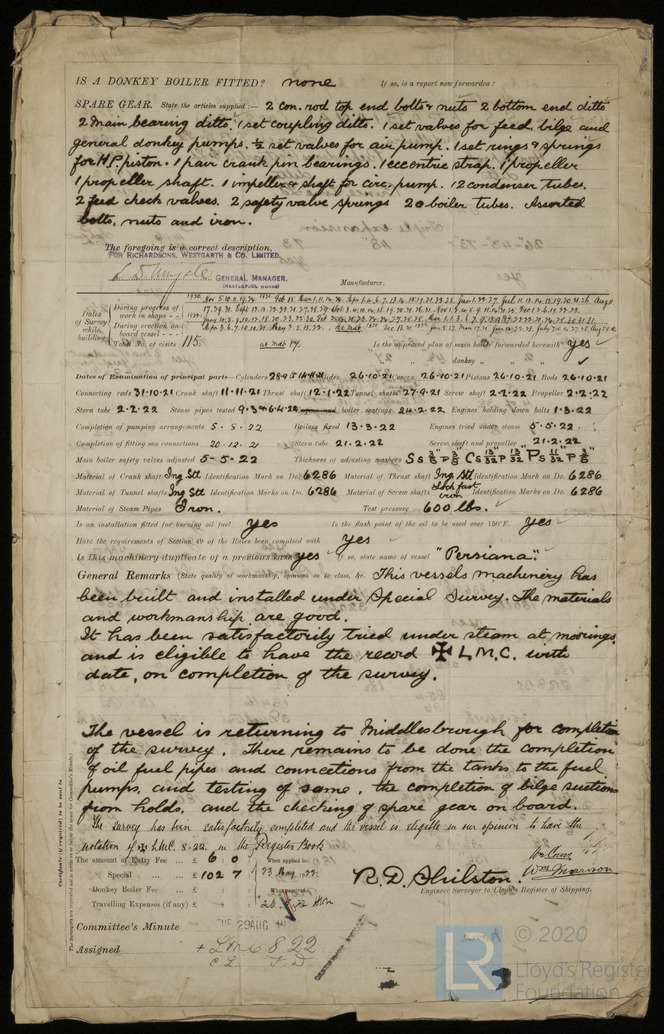 IS A DONKEY BOILER FITTED? none If so, is a report now forwarded?
SPARE GEAR. State the articles supplied :— 2 con. rod top end bolts & nuts 2 bottom end ditto
2 main bearing ditto. 1 set coupling ditto. 1 set valves for feed, bilge and
general donkey pumps. ½ set valves for air pump. 1 set rings & springs
for H.P. piston. 1 pair crank pin bearings. 1 eccentric strap. 1 propeller
1 propeller shaft. 1 impeller & shaft for circ. pump. 12 condenser tubes.
2 feed check valves. 2 safety valve springs 20 boiler tubes. Assorted
bolts, nuts and iron.
The foregoing is a correct description,
FOR RICHARDSONS, WESTGARTH & CO. LIMITED,
GENERAL MANAGER.
(HARTLEPOOL WORKS)
Manufacturer.
Dates of Survey while building
During progress of work in shops
During erection on board vessel
Total No. of visits 115. at Mdb 17. Is the approved plan of main boiler forwarded herewith yes
donkey
Dates of Examination of principal parts—Cylinders Slides 26.10.21 Covers 26.10.21 Pistons 26.10.21 Rods 26.10.21
Connecting rods 31.10.21 Crank shaft 11.11.21 Thrust shaft 12.1.22 Tunnel shafts 27.9.21 Screw shaft 2.2.22 Propeller 2.2.22
Stern tube 2.2.22 Steam pipes tested boiler seatings 24.2.22 Engines holding down bolts 1.3.22
Completion of pumping arrangements 5.5.22 Boilers fixed 13.3.22 Engines tried under steam 5.5.22
Completion of fitting sea connections 20.12.21 Stern tube 21.2.22 Screw shaft and propeller 21.2.22
Main boiler safety valves adjusted 5-5-22 Thickness of adjusting washers
Material of Crank shaft Ing Stl Identification Mark on Do. 6286 Material of Thrust shaft Ing Stl Identification Mark on Do. 6286
Material of Tunnel shafts Ing Stl Identification Marks on Do. 6286 Material of Screw shafts iron Identification Marks on Do. 6286
Material of Steam Pipes Iron. Test pressure 600 lbs.
Is an installation fitted for burning oil fuel yes Is the flash point of the oil to be used over 150°F. yes
Have the requirements of Section 49 of the Rules been complied with yes
Is this machinery duplicate of a previous case yes If so, state name of vessel "Persiana".
General Remarks (State quality of workmanship, opinions as to class, &c. This vessels machinery has
been built and installed under Special Survey. The materials
and workmanship are good.
It has been satisfactorily tried under steam at moorings,
and is eligible to have the record ✠ L.M.C. with
date, on completion of the survey.
The vessel is returning to Middlesbrough for completion
of the survey. There remains to be done the completion
of oil fuel pipes and connections from the tanks to the fuel
pumps, and testing of same, the completion of bilge suctions
from holds, and the checking of spare gear on board.
The survey has been satisfactorily completed and the vessel is eligible in our opinion to have the
notation of ✠ L.M.C. 8.22. in the Register Book
The amount of Entry Fee ... £ 6 : 0 When applied for,
Special ... £ 102 : 7 23 May 1922
Donkey Boiler Fee ... £
Travelling Expenses (if any) £
R. D. Shilston.
Engineer Surveyor to Lloyd's Register of Shipping.
Committee's Minute TUE 29 AUG
Assigned + LMC 8.22
C L F D
LR © 2020
Lloyd's Register
Foundation